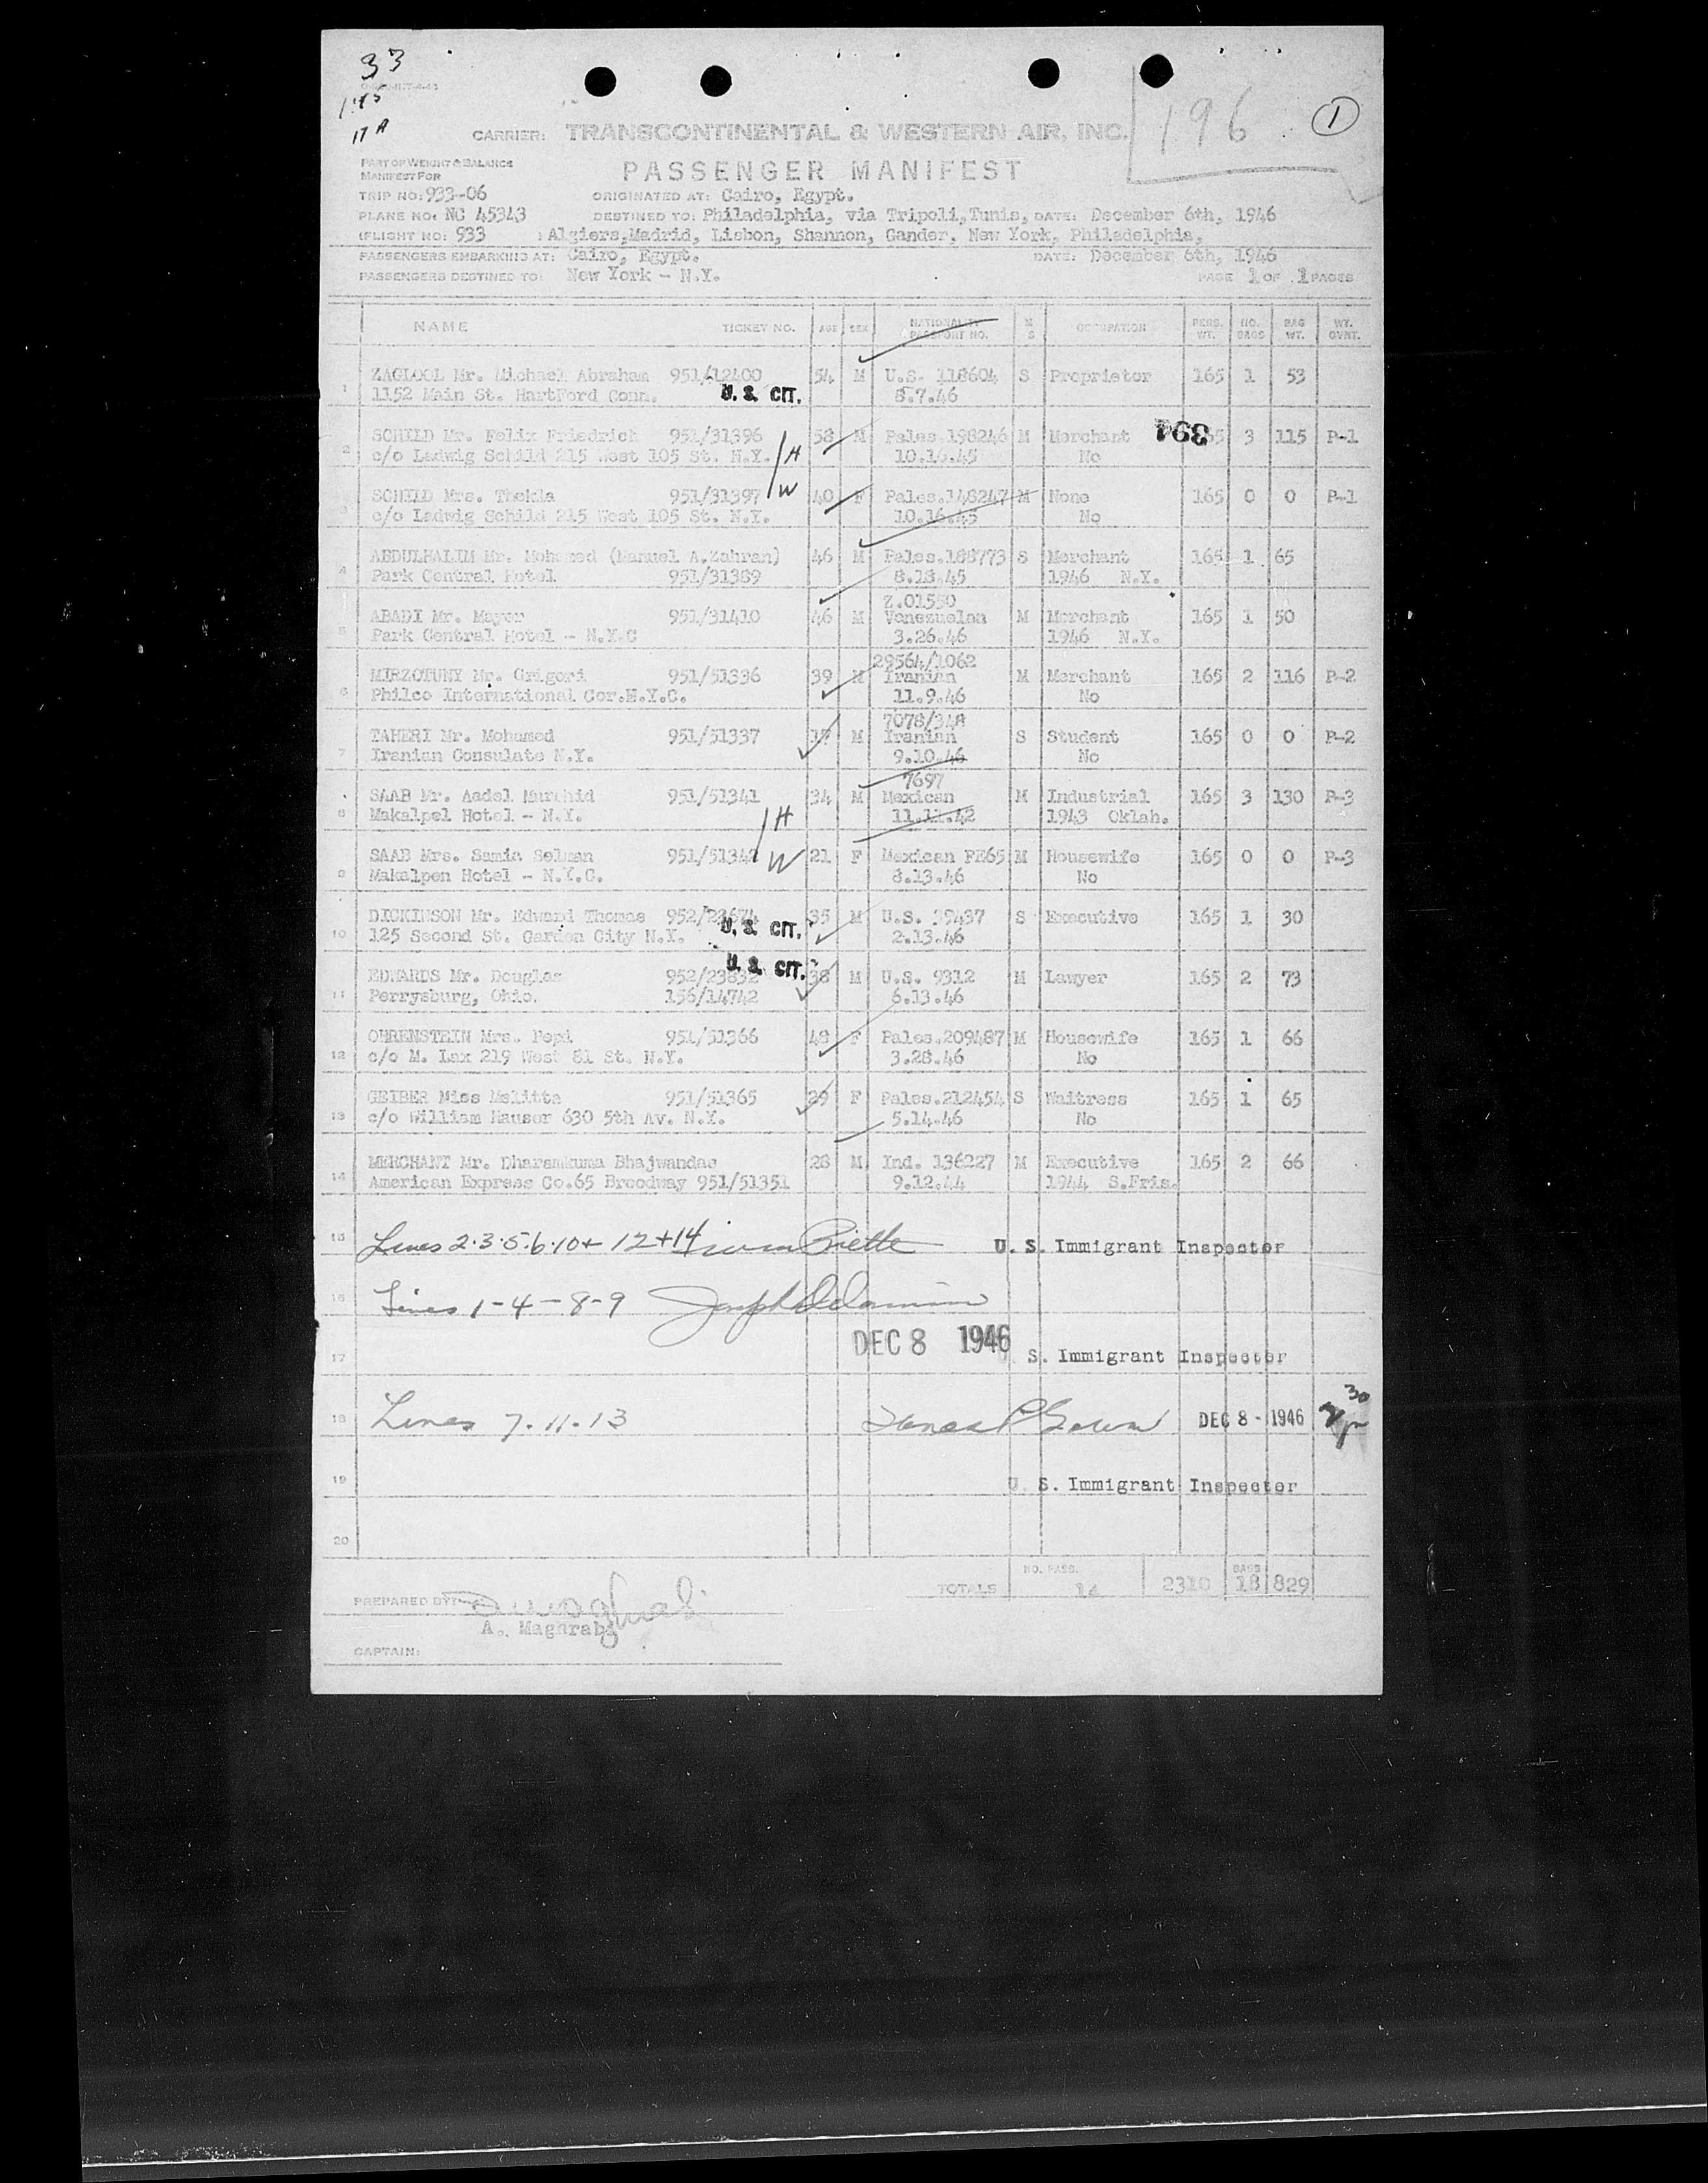 33
1
196
17 A
CARRIER: TRANSCONTINENTAL & WESTERN AIR, INC.
PART OF WEIGHT & BALANCE
MANIFEST FOR
PASSENGER MANIFEST
TRIP NO: 933-06 ORIGINATED AT: Cairo, Egypt.
PLANE NO: NC 45343 DESTINED TO: Philadelphia, via Tripoli, Tunis, DATE: December 6th, 1946
(FLIGHT NO: 933 : Algiers, Madrid, Lisbon, Shannon, Gander, New York, Philadelphia,
PASSENGERS EMBARKING AT: Cairo, Egypt. DATE: December 6th, 1946
PASSENGERS DESTINED TO: New York - N.Y. PAGE 1 OF 1 PAGES
NAME TICKET NO. AGE SEX NATIONALITY PASSPORT NO. M S OCCUPATION PERS. WT. NO. BAGS BAG WT. WT. GVNT.
1 ZAGLOOL Mr. Michael Abraham 951/12400 54 M U.S. 118604 S Proprietor 165 1 53
1152 Main St. HartFord Conn. U. S. CIT. 8.7.46
2 SCHILD Mr. Felix Friedrich 951/31396 58 M Pales.198246 M Merchant 394 3 115 P-1
c/o Ladwig Schild 215 West 105 St. N.Y. H 10.16.45 No
3 SCHILD Mrs. Thekla 951/31397 W 40 F Pales.148247 M None 165 0 0 P-1
c/o Ladwig Schild 215 West 105 St. N.Y. 10.16.45 No
4 ABDULHALIM Mr. Mohamed (Manuel A.Zahran) 46 M Pales.188773 S Merchant 165 1 65
Park Central Hotel 951/31389 8.18.45 1946 N.Y.
Z.01550
5 ABADI Mr. Mayer 951/31410 46 M Venezuelan M Merchant 165 1 50
Park Central Hotel - N.Y.C 3.26.46 1946 N.Y.
29564/1062
6 MIRZOTUNY Mr. Grigori 951/51336 39 M Iranian M Merchant 165 2 116 P-2
Philco International Cor.N.Y.C. 11.9.46 No
7078/348
7 TAHERI Mr. Mohamed 951/51337 M Iranian S Student 165 0 0 P-2
Iranian Consulate N.Y. 9.10.46 No
7697
8 SAAB Mr. Aadel Murchid 951/51341 34 M Mexican M Industrial 165 3 130 P-3
Makalpel Hotel - N.Y. H 11.11.42 1943 Oklah.
9 SAAB Mrs. Samia Selman 951/51342 W 21 F Mexican FE65 M Housewife 165 0 0 P-3
Makalpen Hotel - N.Y.C. 8.13.46 No
10 DICKINSON Mr. Edward Thomas 952/23674 35 M U.S. 39437 S Executive 165 1 30
125 Second St. Garden City N.Y. U. S. CIT. 2.13.46
U. S. CIT.
11 EDWARDS Mr. Douglas 952/23832 38 M U.S. 9312 M Lawyer 165 2 73
Perrysburg, Ohio. 156/14742 6.13.46
12 OHRENSTEIN Mrs. Pepi 951/51366 48 F Pales.209487 M Housewife 165 1 66
c/o M. Lax 219 West 81 St. N.Y. 3.28.46 No
13 GEIBER Miss Melitta 951/51365 29 F Pales.212454 S Waitress 165 1 65
c/o William Hauser 630 5th Av. N.Y. 5.14.46 No
14 MERCHANT Mr. Dharamkuma Bhajwandas 28 M Ind. 136227 M Executive 165 2 66
American Express Co.65 Broodway 951/51351 9.12.44 1944 S.Fris.
15 Lines 2.3.5.6.10+ 12+14 U. S. Immigrant Inspector
16 Lines 1-4-8-9 Joseph
DEC 8 1946
17 S. Immigrant Inspector
18 Lines 7.11.13 DEC 8 - 1946 30
19 U. S. Immigrant Inspector
20
TOTALS NO. PASS. 14 2310 BAGS 18 829
PREPARED BY:
A. Maghrabi
CAPTAIN: